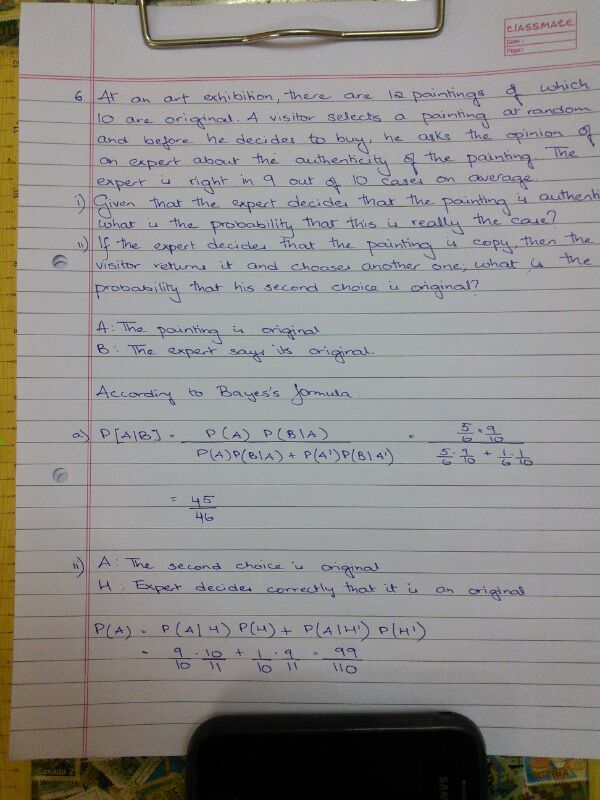 CLASSMATE
Date :
Page :
6 At an art exhibition, there are 12 paintings of which
10 are original. A visitor selects a painting at random
and before he decides to buy, he asks the opinion of
an expert about the authenticity of the painting. The
expert is right in 9 out of 10 cases on average
i) Given that the expert decides that the painting is authenti
what is the probability that this is really the case?
ii) If the expert decides that the painting is copy, then the
visitor returns it and chooses another one, what is the
probability that his second choice is original?
A : The painting is original
B : The expert says its original.
According to Bayes's formula
a) P[A|B] = P(A) P(B|A) / P(A)P(B|A) + P(A')P(B|A') = 5/6 × 9/10 / 5/6 · 9/10 + 1/6 · 1/10
= 45/46
ii) A : The second choice is original
H : Expert decides correctly that it is an original
P(A) = P(A|H) P(H) + P(A|H') P(H')
= 9/10 · 10/11 + 1/10 · 9/11 = 99/110
Canada 2
SAMSUNG